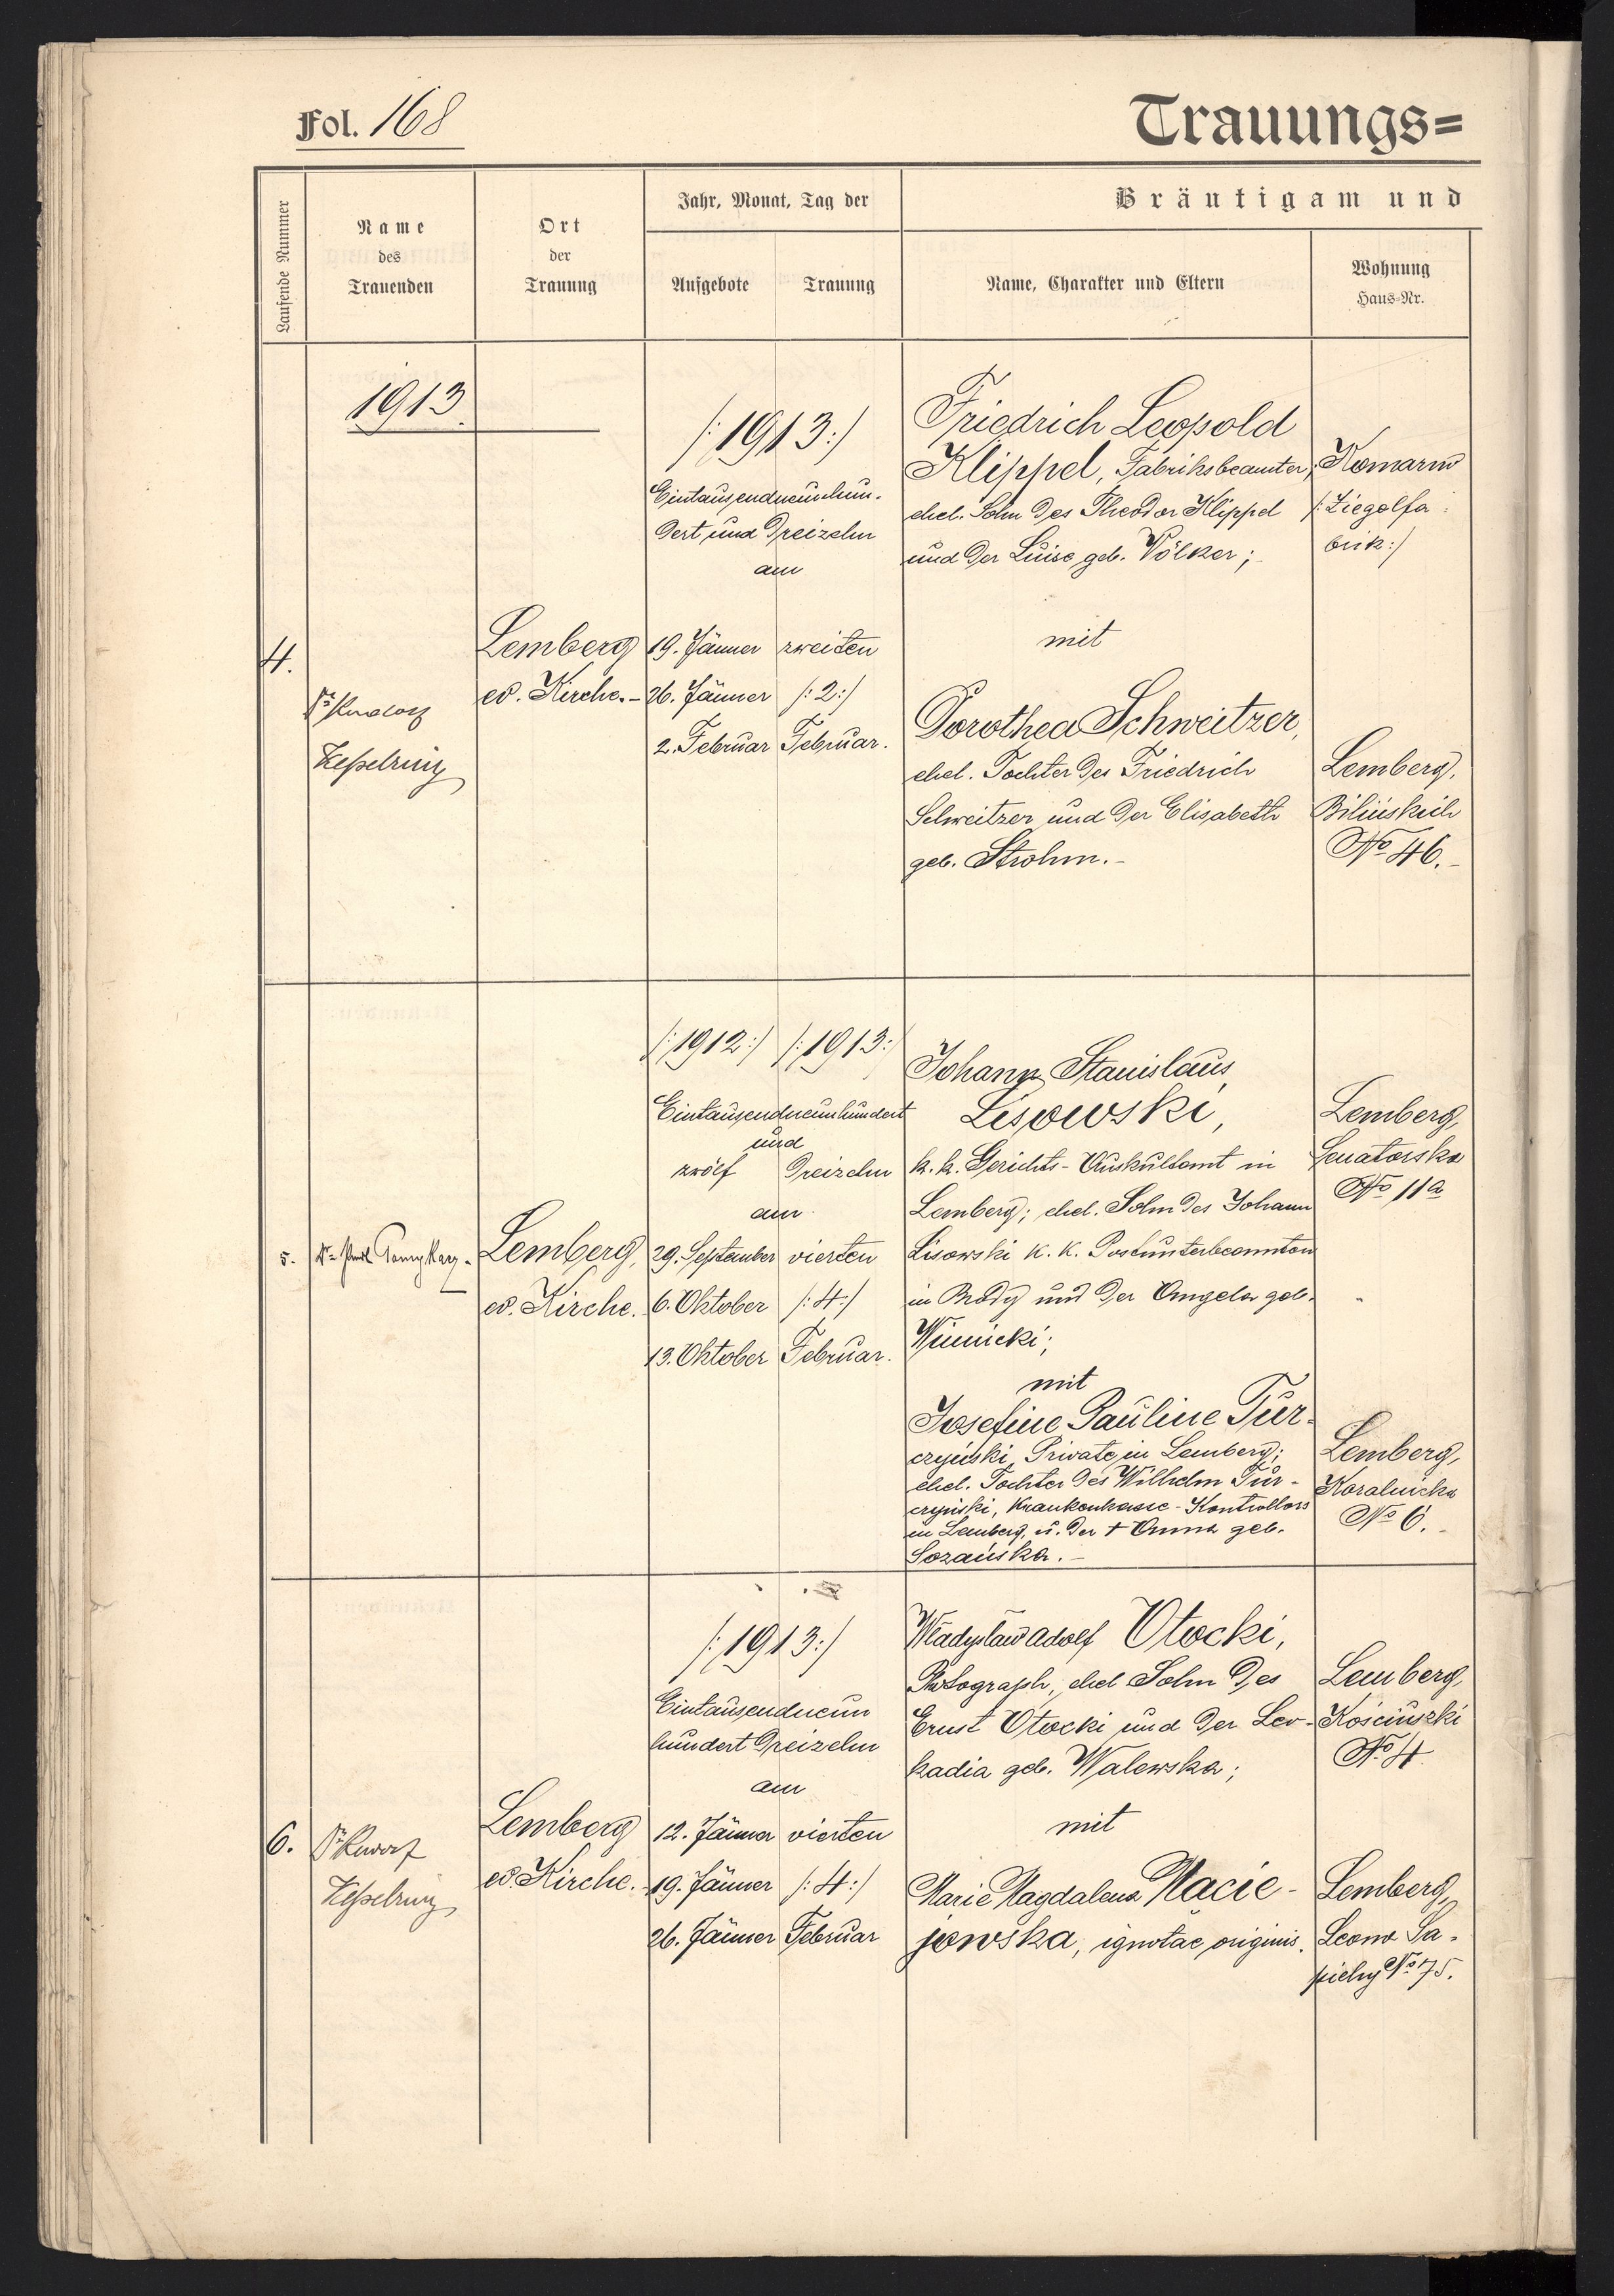 Fol. 168
Trauungs=
Laufende Nummer
Name
des
Trauenden
Ort
der
Trauung
Jahr, Monat, Tag der
Aufgebote
Trauung
Bräutigam und
Name, Charakter und Eltern
Wohnung
Haus-Nr.
1913
/:1913:/
Eintausendneunhun-
dert und Dreizehn
am
4.
Dr Rudolf
Kesselring
Lemberg
ev. Kirche.-
19. Jänner
26. Jänner
2. Februar
zweiten
/:2:/
Februar.
Friedrich Leopold
Klippel, Fabriksbeamter,
ehel. Sohn des Theodor Klippel
und der Luise geb. Völker;
mit
Dorothea Schweitzer,
ehel. Tochter des Friedrich
Schweitzer und der Elisabeth
geb. Strohm.-
Komarno
/:Ziegelfa-
brik:/
Lemberg,
Bilińskich
No 46.-
/:1912:/ /:1913:/
Eintausendneunhundert
und
zwölf Dreizehn
am
5.
Dr
Lemberg,
ev. Kirche.
29. September
6. Oktober
13. Oktober
vierten
/:4:/
Februar.
Johann Stanislaus
Lisowski,
k. k. Gerichts-Auskultant in
Lemberg; ehel. Sohn des Johann
Lisowski k. k. Postunterbeamten
in Brody und der Angela geb.
Winnicki;
mit
Josefine Pauline Tur-
czyński, Private in Lemberg;
ehel. Tochter des Wilhelm Tur-
czyński, Krankenkasse-Kontrollors
in Lemberg, u. der † Anna geb.
Sozańska.-
Lemberg,
Senatorska
No 11a
Lemberg,
Koralnicka
No 6.-
/:1913:/
Eintausendneun
hundert Dreizehn
am
6.
Dr Rudolf
Kesselring
Lemberg
ev. Kirche.
12. Jänner
19. Jänner
26. Jänner
vierten
/:4:/
Februar
Władysław Adolf Otocki,
Photograph, ehel Sohn des
Ernst Otocki und der Leo-
kadia geb. Walewska;
mit
Marie Magdalena Macie-
jowska, ignotae originis.
Lemberg,
Kościuszki
No 4
Lemberg,
Leona Sa-
piehy No 75.